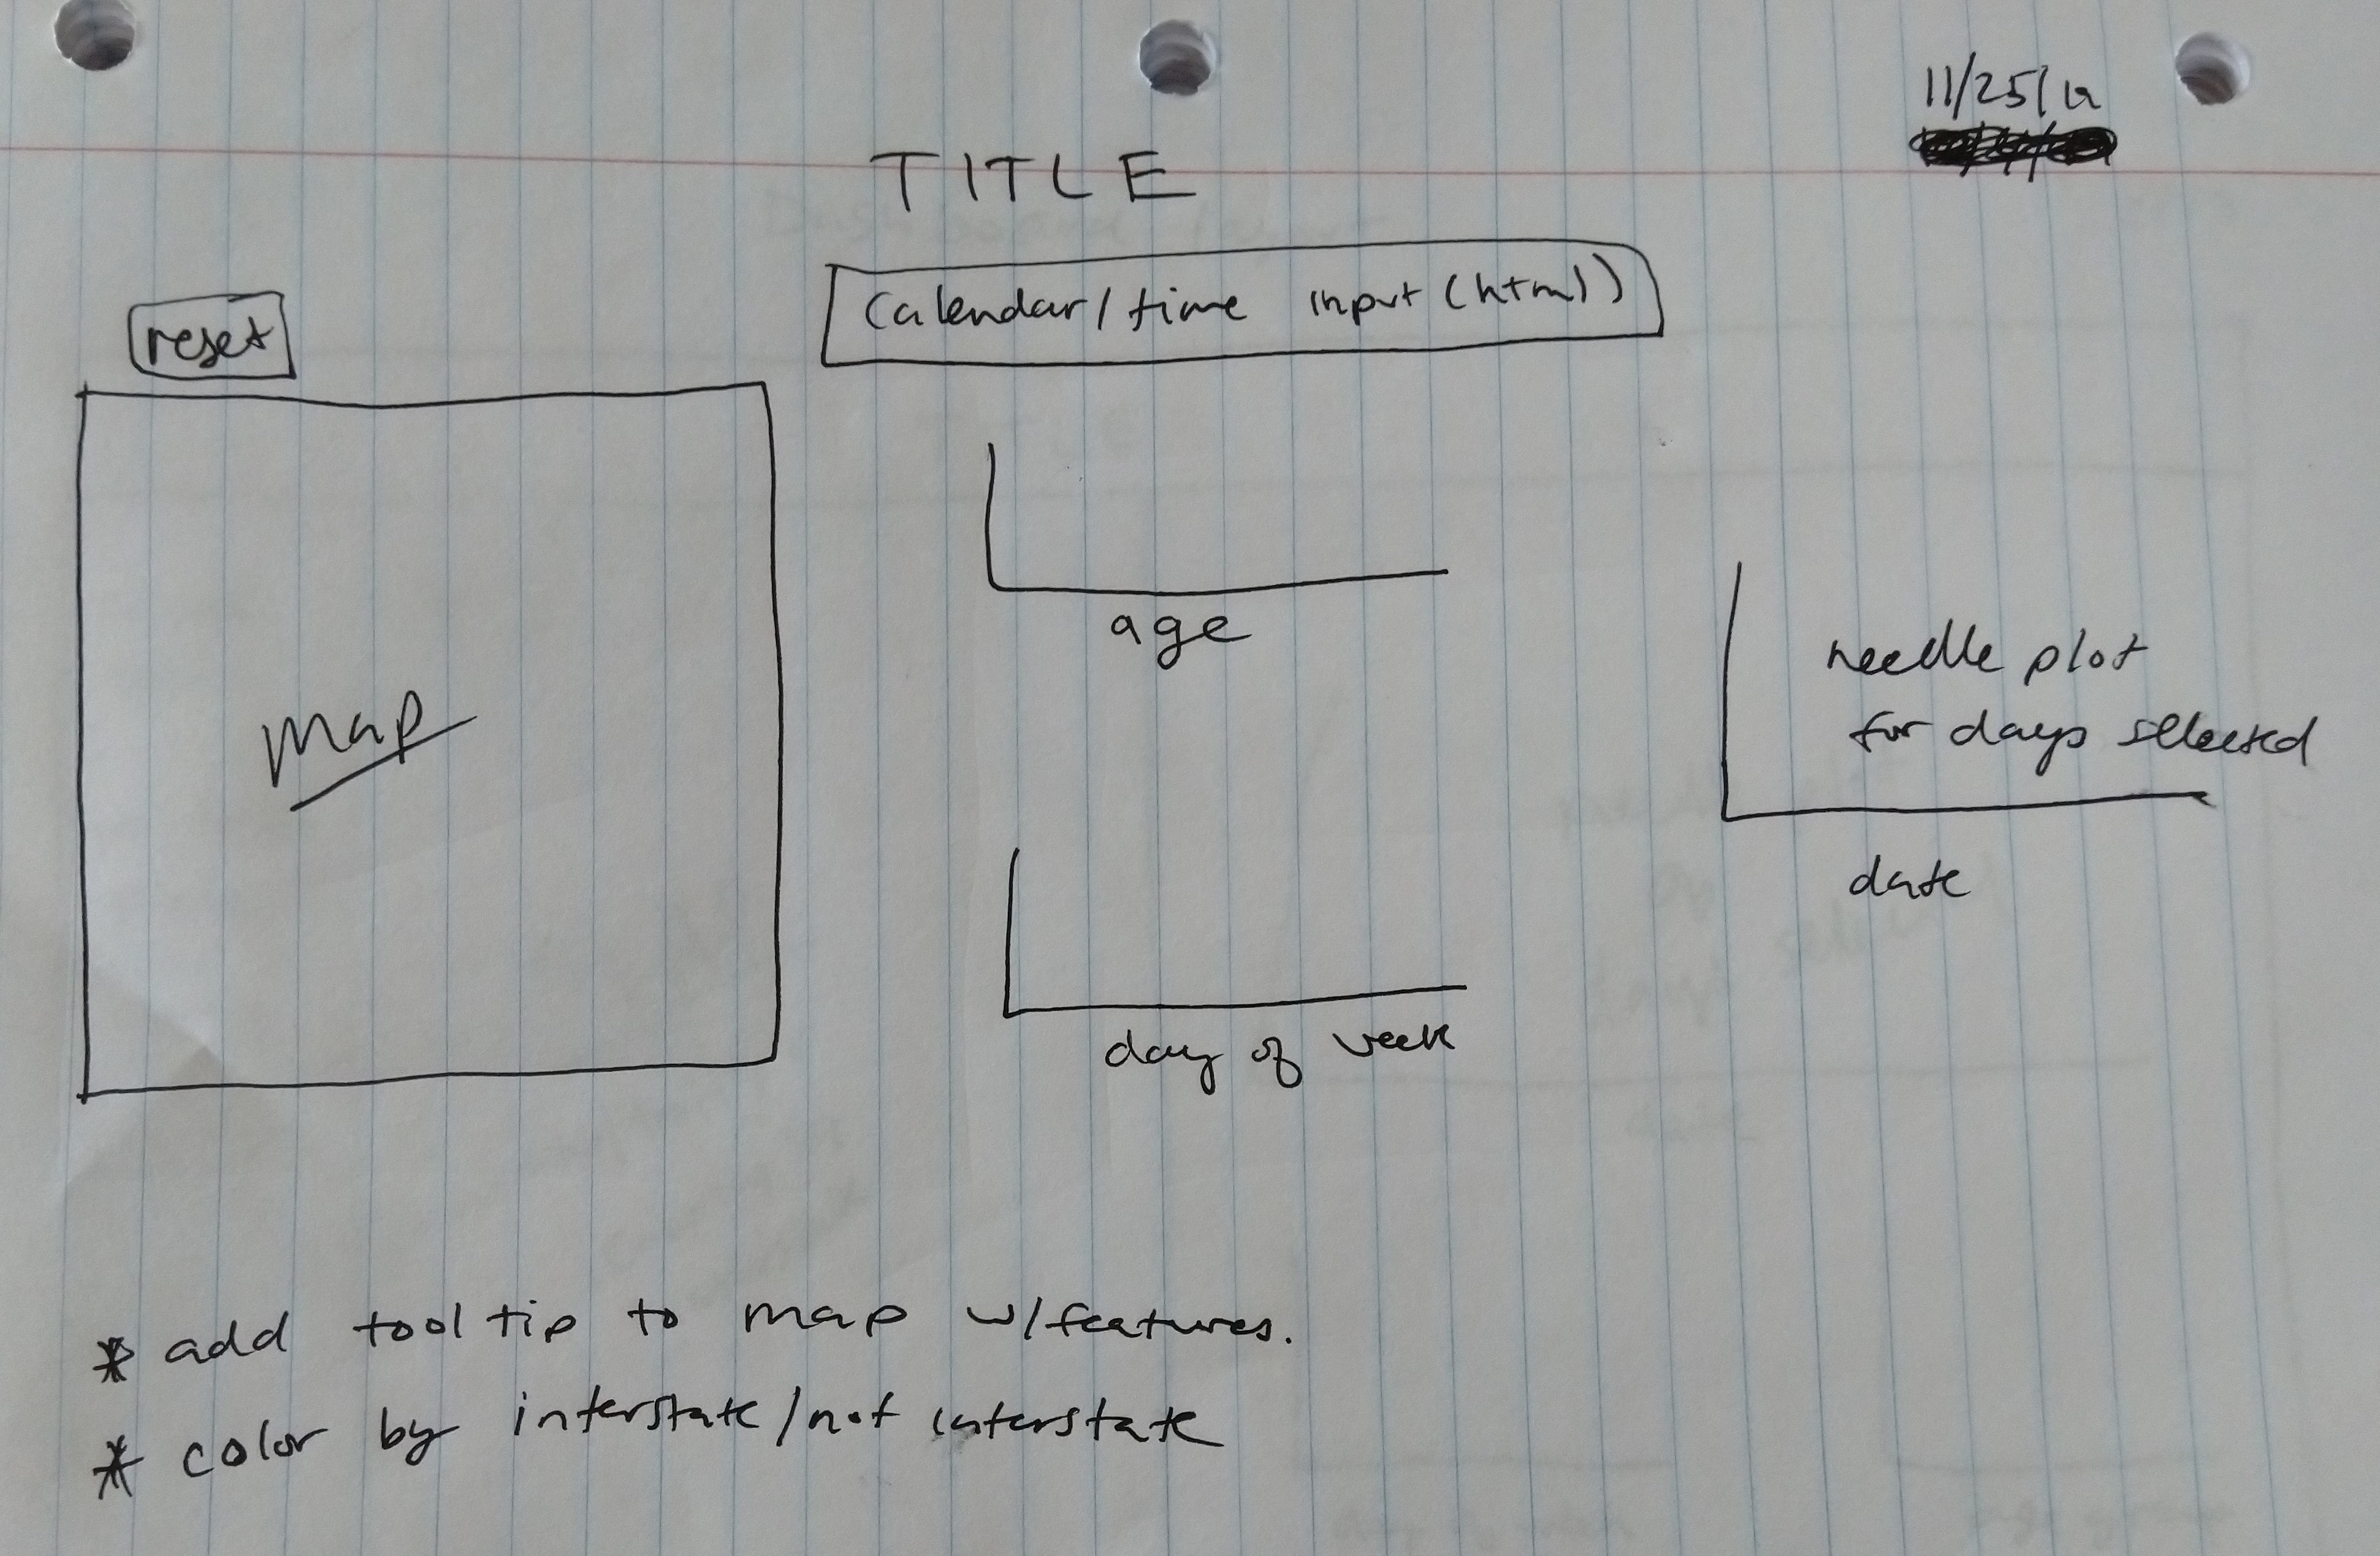 11/25/19
TITLE
reset
Calendar/time input (html)
age
map
needle plot
for days selected
date
day of week
* add tool tip to map w/features.
* color by interstate/not interstate